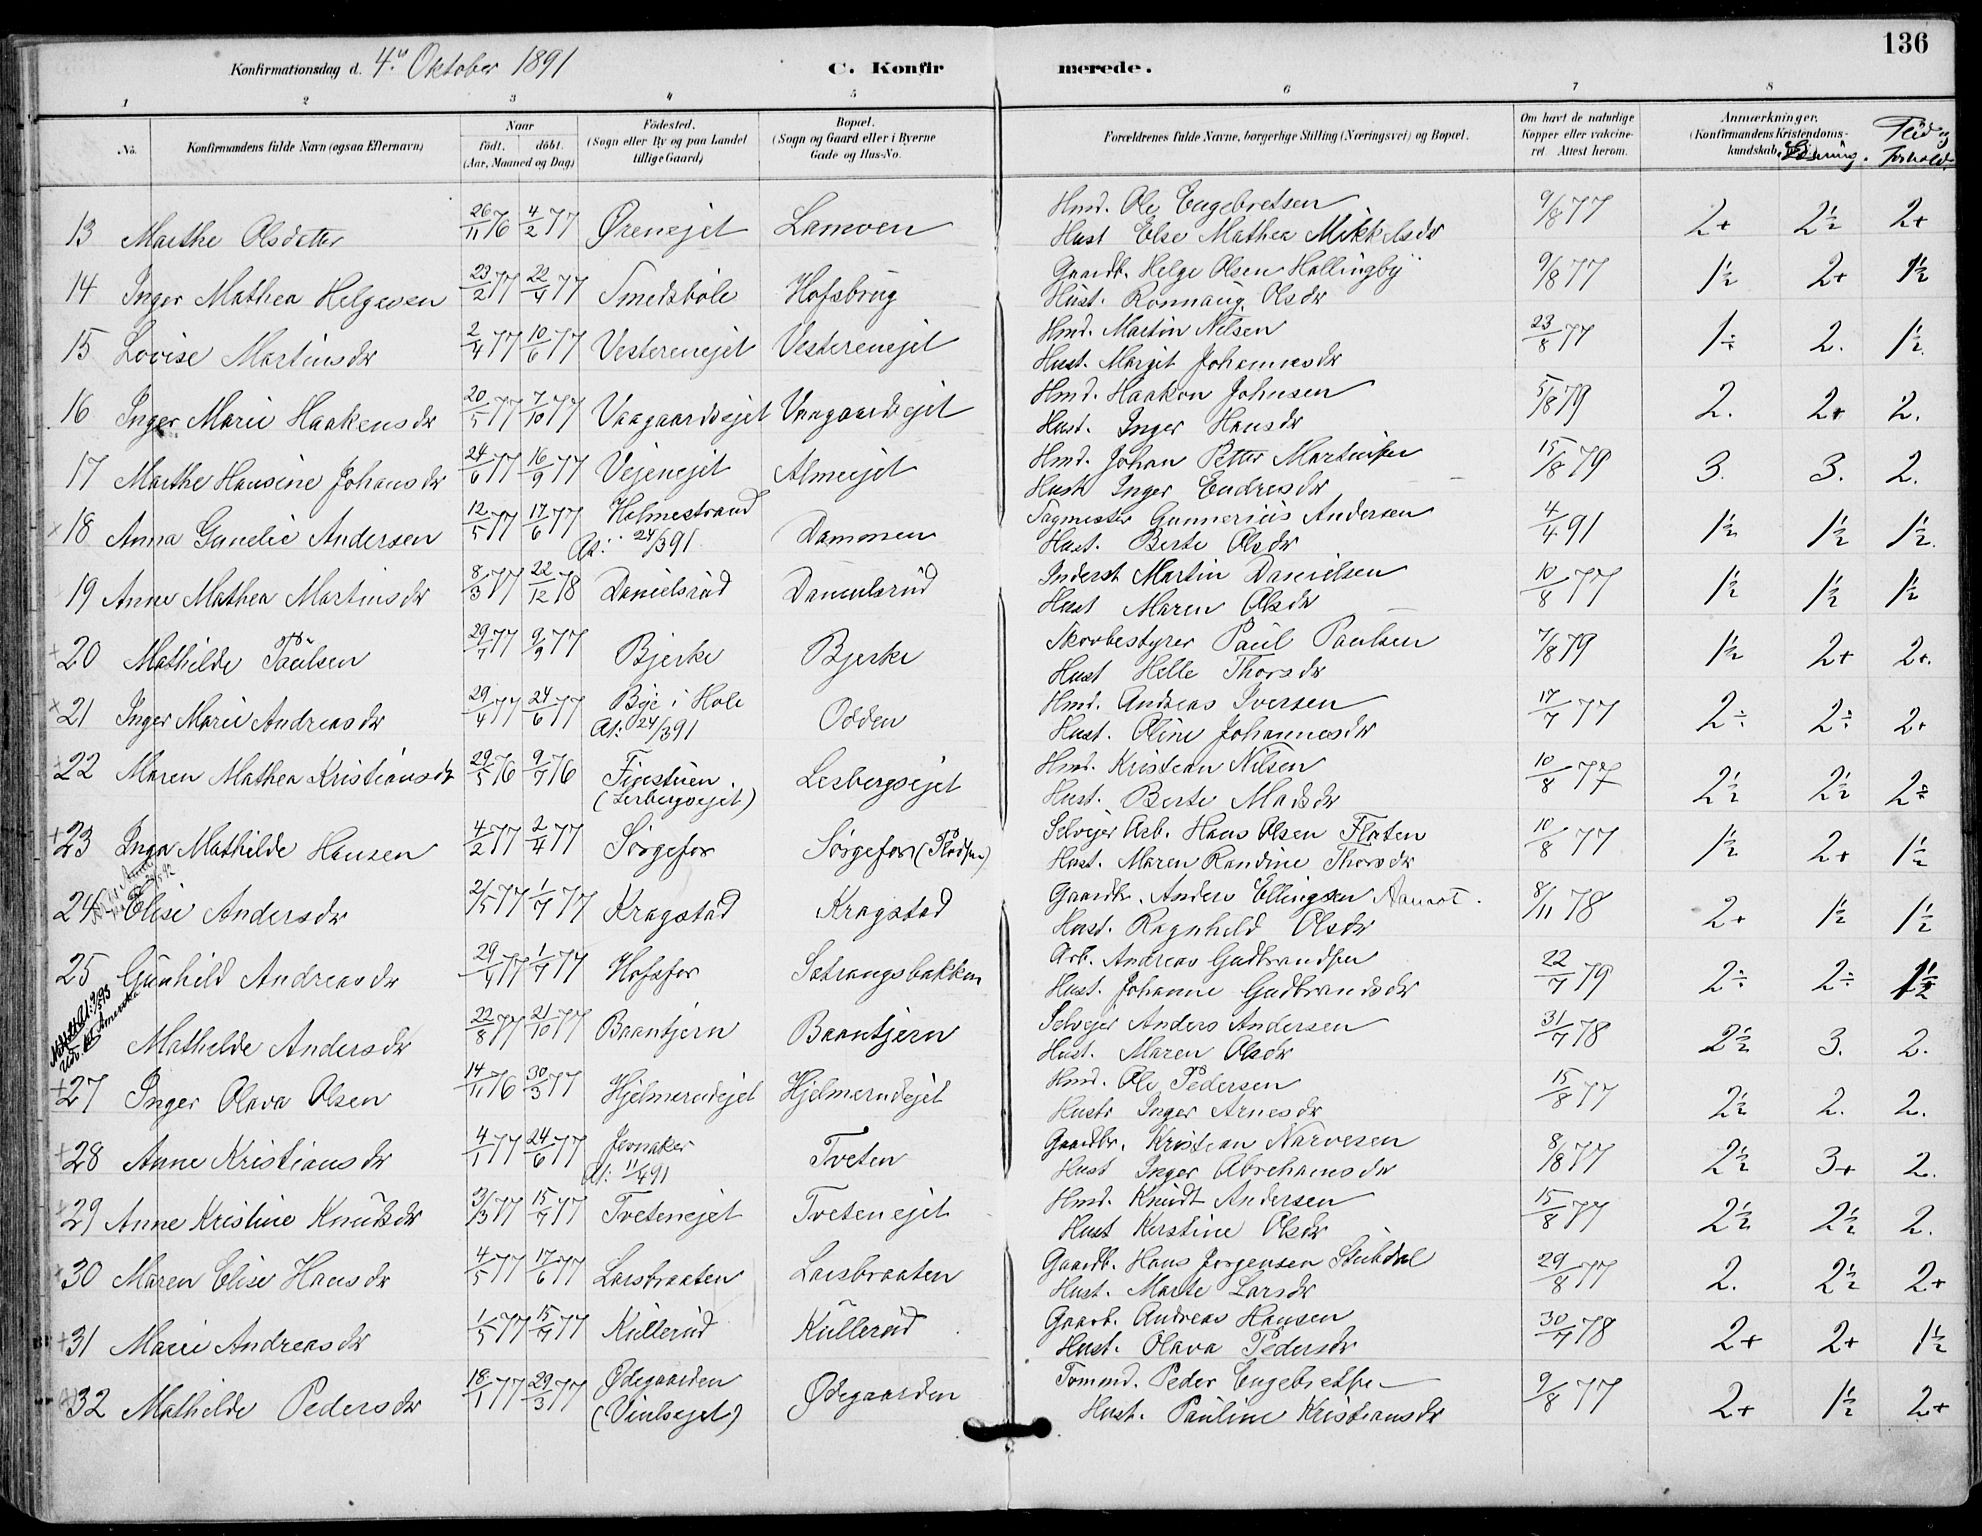 Konfirmationsdag d. 4de Oktober 1891 C. Konfirmerede. 136
1 2 3 4 5 6 7 8
No. Konfirmandens fulde Navn (ogsaa Efternavn) Naar født. døbt. (Aar, Maaned og Dag) Fødested. (Sogn eller By og paa Landet tillige Gaard) Bopæl. (Sogn og Gaard eller i Byerne Gade og Hus-No. Forældrenes fulde Navne, borgerlige Stilling (Næringsvei) og Bopæl. Om havt de naturlige Kopper eller vakcineret. Attest herom. Anmærkninger. (Konfirmandens Kristendomskundskab, Læsning. Flid og Forhold.
13 Marthe Olsdatter 26/11 76 4/2 77 Ørenejet Lamoen Hmd. Ole Engebretsen 9/8 77 2+ 2½ 2+
Hust Else Mathea Mikkelsdr
14 Inger Mathea Helgesen 23/2 77 22/4 77 Smedsbøle Hofsbrug Gaardb. Helge Olsen Hallingby 9/8 77 1½ 2+ 1½
Hust. Rønnaug Olsdr
15 Lovise Martinsdr 2/4 77 10/6 77 Vesterenejet Vesterenejet Hmd. Martin Nilsen 23/8 77 1÷ 2. 1½
Hust. Margit Johannesdr
16 Inger Marie Haakensdr 20/5 77 7/10 77 Vaagaardsejet Vaagaardsejet Hmd. Haakon Johnsen 5/8 79 2. 2+ 2.
Hust. Inger Hansdr
17 Marthe Hansine Johansdr 24/6 77 16/9 77 Vejenejet Almeejet Hmd. Johan Petter Martinsen 15/8 79 3. 3. 2.
Hust Inger Endresdr
18 Anna Gunelie Andersen 12/5 77 17/6 77 Holmestrand Dammen Sagmester Gunnerius Andersen 4/4 91 1½ 1½ 1½
At: 24/3 91 Hust. Berte Olsdr
19 Anne Mathea Martinsdr 8/3 77 22/12 78 Danielsrud Danielsrud Inderst Martin Danielsen 10/8 77 1½ 1½ 1½
Hust Maren Olsdr
20 Mathilde Paulsen 29/7 77 9/9 77 Bjerke Bjerke Skovbestyrer Paul Paulsen 7/8 79 1½ 2+ 2+.
Hust Helle Thorsdr
21 Inger Marie Andreasdr 29/4 77 24/6 77 Bye i Hole Odden Hmd. Andreas Iversen 17/7 77 2÷ 2÷ 2+
At: 24/3 91 Hust. Oline Johannesdr
22 Maren Mathea Kristiansdr 29/5 76 9/7 76 Lesbergsejet Hmd. Kristian Nilsen 10/8 77 2½ 2½ 2÷
(Lerbergsejet) Hust. Berte Madsdr
23 Inga Mathilde Hansen 4/2 77 2/4 77 Sørgefos Sørgefos Selvejer Arb. Hans Olsen Floten 10/8 77 1½ 2+ 1½
Hust. Maren Randine Thorsdr
24 Elise Andersdr 2/5 77 1/7 77 Kragstad Kragstad Gaardbr. Anders Ellingsen 8/11 78 2+ 1½ 1½
Hust. Ragnhild Olsdr
25 Gunhild Andreasdr 29/4 77 1/7 77 Hofsfos Setrangsbakken Arb. Andreas Gudbrandsen 22/7 79 2÷ 2÷ 1½
Hust. Johanne Gudbrandsdr
Mathilde Andersdr 22/8 77 21/10 77 Baantjern Baantjern Selvejer Anders Andersen 31/7 78 2½ 3. 2.
Hust. Maren Olsdr
27 Inger Olava Olsen 14/11 76 30/3 77 Hjelmerudejet Hjelmerudejet Hmd. Ole Pedersen 15/8 77 2½ 2. 2.
Hustr Inger Arnesdr
28 Anne Kristiansdr 4/1 77 24/6 77 Jevnaker Tveten Gaardbr. Kristian Narvesen 8/8 77 2½ 3+ 2.
At: 11/4 91 Hust Inger Abrahamsdr
29 Anne Kristine Knudsdr 3/3 77 15/7 77 Tvetenejet Tvetenejet Hmd. Knudt Andersen 15/8 77 2½ 2½ 2.
Hust Kerstine Olsdr
30 Maren Elise Hansdr 4/5 77 17/6 77 Larsbraaten Larsbraaten Gaardb. Hans Jørgensen Stubdal 29/8 77 2. 2½ 2+
Hust. Marte Larsdr
31 Marie Andreasdr 1/5 77 15/7 77 Kullerud Kullerud Gaardb. Andreas Hansen 30/7 78 2+ 2+ 1½
Hust. Olava Pedersdr
32 Mathilde Pedersdr 18/1 77 29/3 77 Ødegaarden Ødegaarden Tømmd. Peder Engebretsen 9/8 77 2+ 1½ 2+
(Veulsejet) Hust. Pauline Kristiansdr